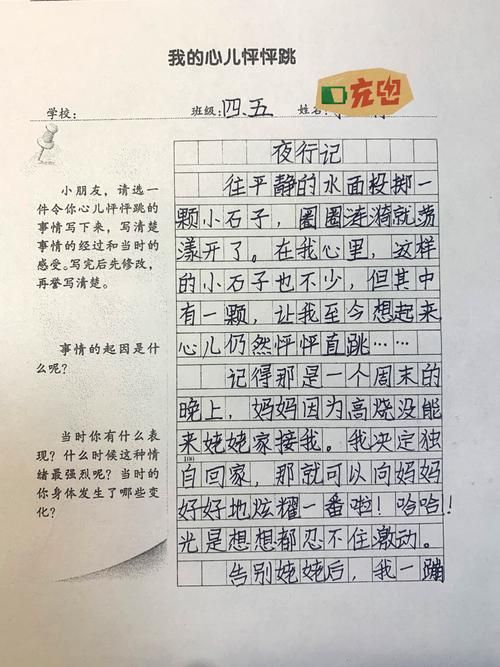 我的心儿怦怦跳
充电
学校：
班级：四.五
姓名：
夜行记
小朋友，请选一
件令你心儿怦怦跳的
事情写下来，写清楚
事情的经过和当时的
感受。写完后先修改，
再誊写清楚。
事情的起因是什
么呢？
当时你有什么表
现？什么时候这种情
绪最强烈呢？当时的
你身体发生了哪些变
化？
往平静的水面投掷一
颗小石子，圈圈涟漪就荡
漾开了。在我心里，这样
的小石子也不少，但其中
有一颗，让我至今想起来
心儿仍然怦怦直跳……
记得那是一个周末的
晚上，妈妈因为高烧没能
来姥姥家接我。我决定独
100
自回家，那就可以向妈妈
好好地炫耀一番啦！哈哈！
光是想想都忍不住激动。
告别姥姥后，我一蹦